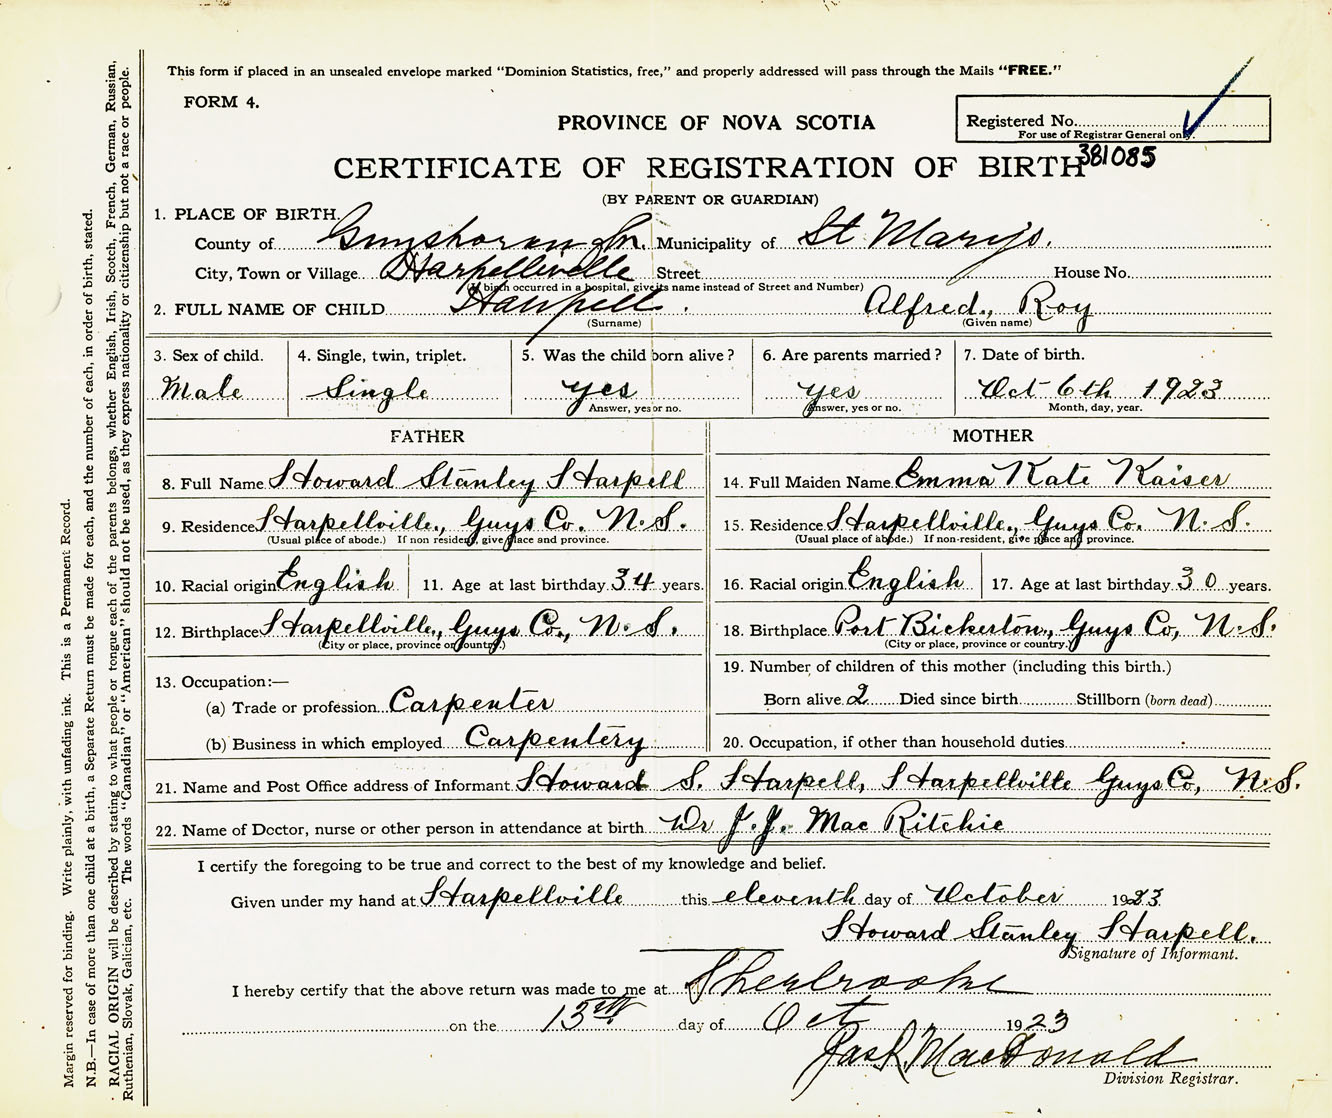 This form if placed in an unsealed envelope marked "Dominion Statistics, free," and properly addressed will pass through the Mails "FREE."
FORM 4.
PROVINCE OF NOVA SCOTIA
Registered No.
For use of Registrar General only.
381085
CERTIFICATE OF REGISTRATION OF BIRTH
(BY PARENT OR GUARDIAN)
1. PLACE OF BIRTH.
County of Municipality of St Marys.
City, Town or Village Harpellville Street House No.
(If birth occurred in a hospital, give its name instead of Street and Number)
2. FULL NAME OF CHILD Harpell. Alfred, Roy
(Surname) (Given name)
3. Sex of child. 4. Single, twin, triplet. 5. Was the child born alive? 6. Are parents married? 7. Date of birth.
Male Single yes yes Oct 6th 1923
Answer, yes or no. Answer, yes or no. Month, day, year.
FATHER
8. Full Name Howard Stanley Harpell
9. Residence Harpellville, Guys Co. N.S.
(Usual place of abode.) If non resident, give place and province.
10. Racial origin English 11. Age at last birthday 34 years.
12. Birthplace Harpellville, Guys Co., N.S.
(City or place, province or country.)
13. Occupation:—
(a) Trade or profession Carpenter
(b) Business in which employed Carpentery
MOTHER
14. Full Maiden Name Emma Kate Kaiser
15. Residence Harpellville, Guys Co. N.S.
(Usual place of abode.) If non-resident, give place and province.
16. Racial origin English 17. Age at last birthday 30 years.
18. Birthplace Port Bickerton, Guys Co, N.S.
(City or place, province or country.)
19. Number of children of this mother (including this birth.)
Born alive 2 Died since birth Stillborn (born dead)
20. Occupation, if other than household duties
21. Name and Post Office address of Informant Howard S. Harpell, Harpellville Guys Co, N.S.
22. Name of Doctor, nurse or other person in attendance at birth Dr J.J. Mac Ritchie
I certify the foregoing to be true and correct to the best of my knowledge and belief.
Given under my hand at Harpellville this eleventh day of October 1923
Howard Stanley Harpell.
Signature of Informant.
I hereby certify that the above return was made to me at Sherbrooke
on the 15th day of Oct 1923
Jas R. MacDonald
Division Registrar.
Margin reserved for binding. Write plainly, with unfading ink. This is a Permanent Record.
N.B.—In case of more than one child at a birth, a Separate Return must be made for each, and the number of each, in order of birth, stated.
RACIAL ORIGIN will be described by stating to what people or tongue each of the parents belongs, whether English, Irish, Scotch, French, German, Russian,
Ruthenian, Slovak, Galician, etc. The words "Canadian" or "American" should not be used, as they express nationality or citizenship but not a race or people.